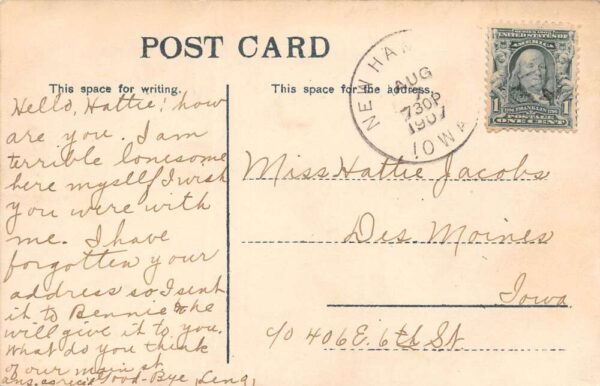 POST CARD
This space for writing.
This space for the address.
NEW HAM
AUG
730P
1907
IOWA
SERIES 1902
UNITED STATES OF AMERICA
1
1
FRANKLIN
POSTAGE
ONE CENT
Hello, Hattie! how
are you. I am
terrible lonesome
here myself I wish
you were with
me. I have
forgotten your
address so I sent
it to Bennie & he
will give it to you.
What do you think
of our main st.
Good-Bye
Miss Hattie Jacobs
Des Moines
Iowa
c/o 406 E. 6th St